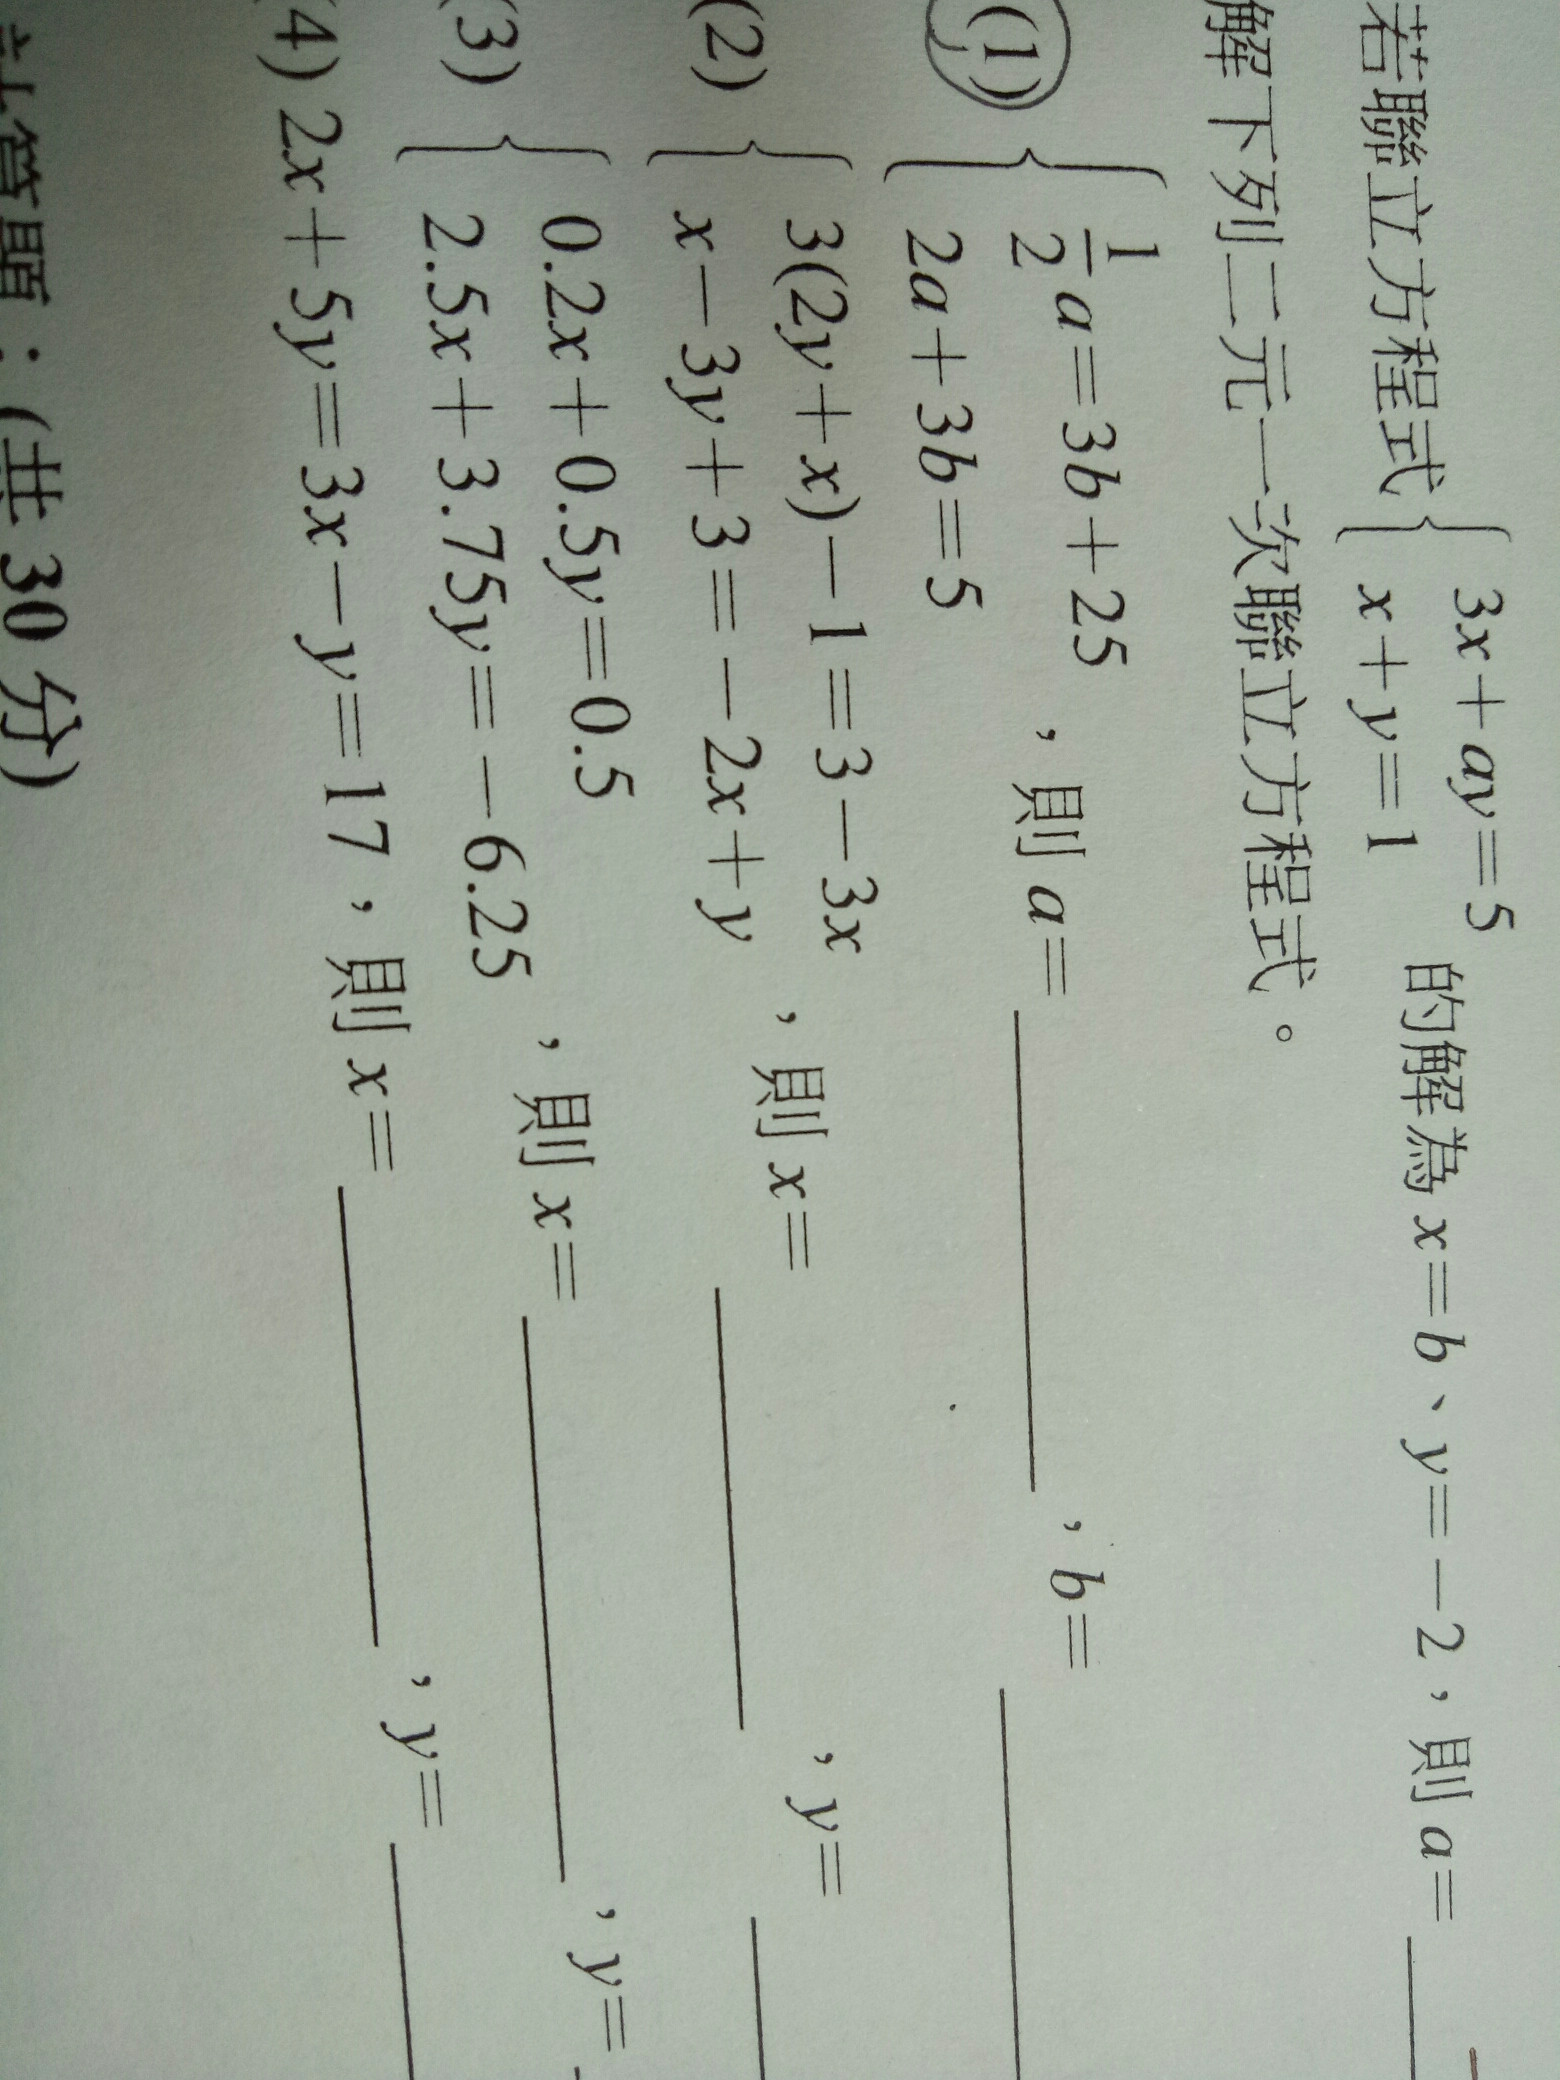 若聯立方程式 { 3x+ay=5
x+y=1 的解為 x=b、y=-2,則 a=
解下列二元一次聯立方程式。
(1) { 1/2 a=3b+25
2a+3b=5 ,則 a= ,b=
(2) { 3(2y+x)-1=3-3x
x-3y+3=-2x+y ,則 x= ,y=
(3) { 0.2x+0.5y=0.5
2.5x+3.75y=-6.25 ,則 x= ,y=
(4) 2x+5y=3x-y=17,則 x= ,y=
計算題:(共 30 分)